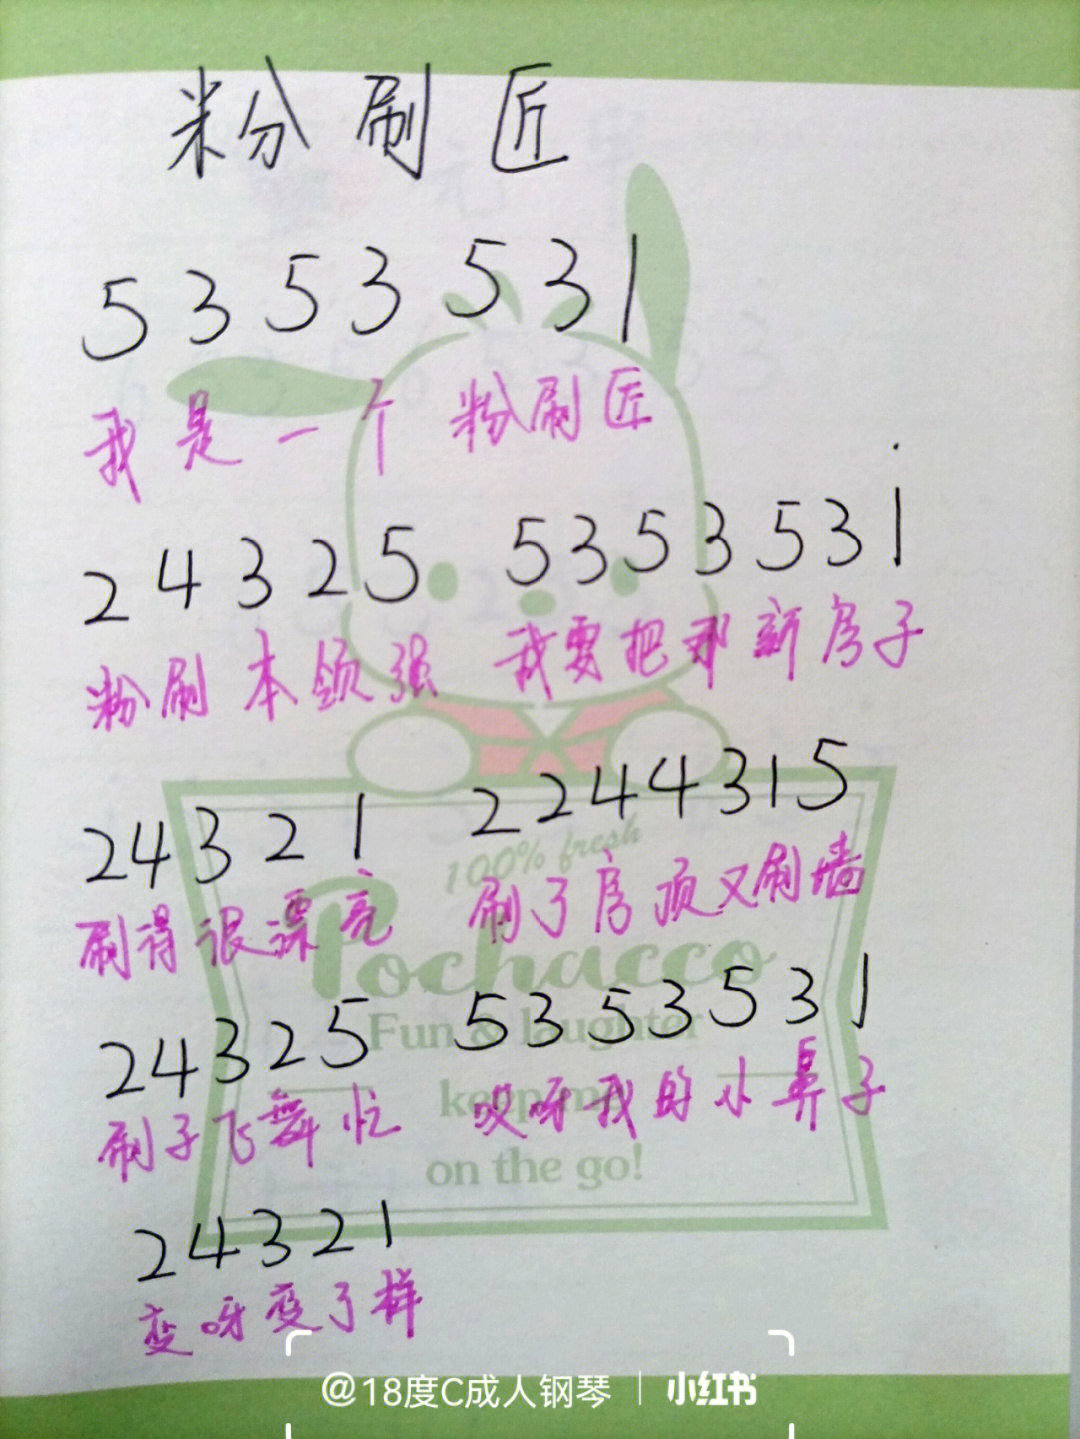 粉刷匠
5 3 5 3 5 3 1
我是一个 粉刷匠
2 4 3 2 5 5 3 5 3 5 3 1̇
粉刷本领强 我要把那新房子
2 4 3 2 1 2 2 4 4 3 1 5
刷得很漂亮 刷了房顶又刷墙
100% fresh
Pochacco
2 4 3 2 5 5 3 5 3 5 3 1
Fun & laughter
刷子飞舞忙 哎呀我的小鼻子
keep me
on the go!
2 4 3 2 1
变呀变了样
@18度C成人钢琴 | 小红书